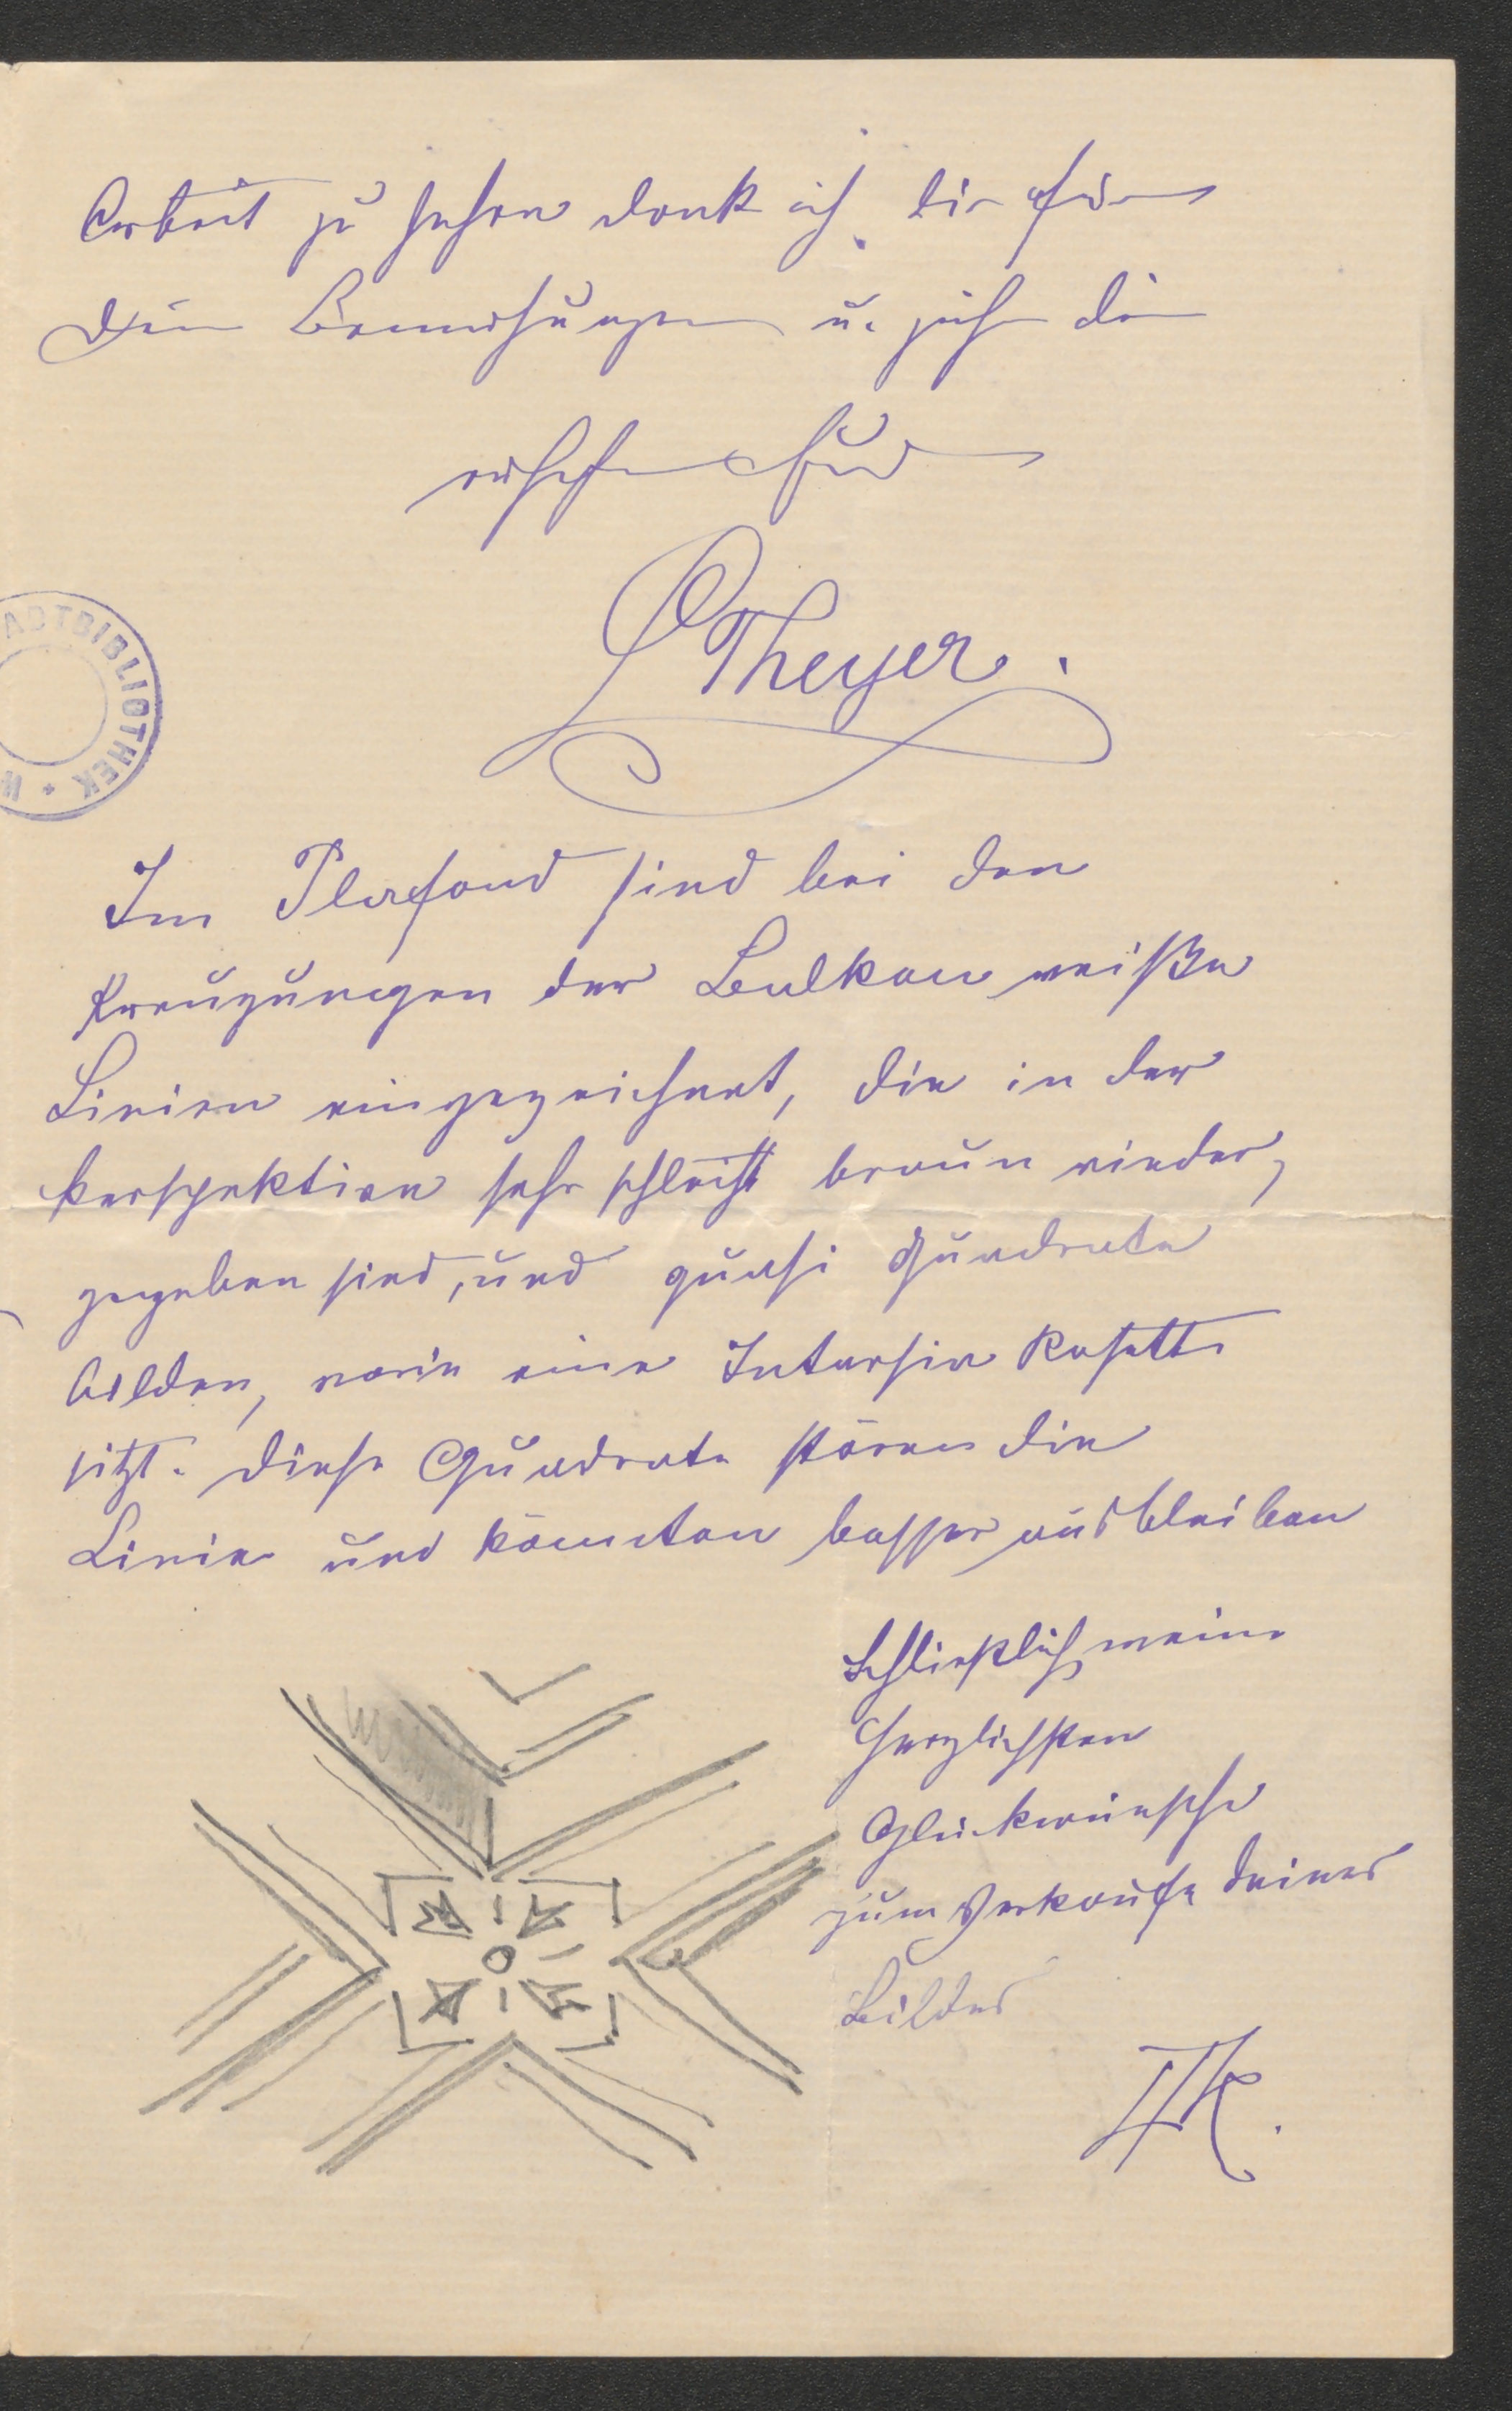 Arbeit zu sehen dank ich dir für
Deine Bemühungen u. zeichne
Theyer.
STADTBIBLIOTHEK
Im Plafond sind bei den
Kreuzungen der Balken weiße
Linien eingezeichnet, die in der
Perspektive sehr schlecht braun wieder,
gegeben sind, und quasi Quadrate
bilden, worin eine Intarsia Rosette
sitzt. Diese Quadrate stören die
Linie und könnten besser ausbleiben
Schließlich meine
herzlichsten
Glückwünsche
zum Verkaufe deines
Bildes